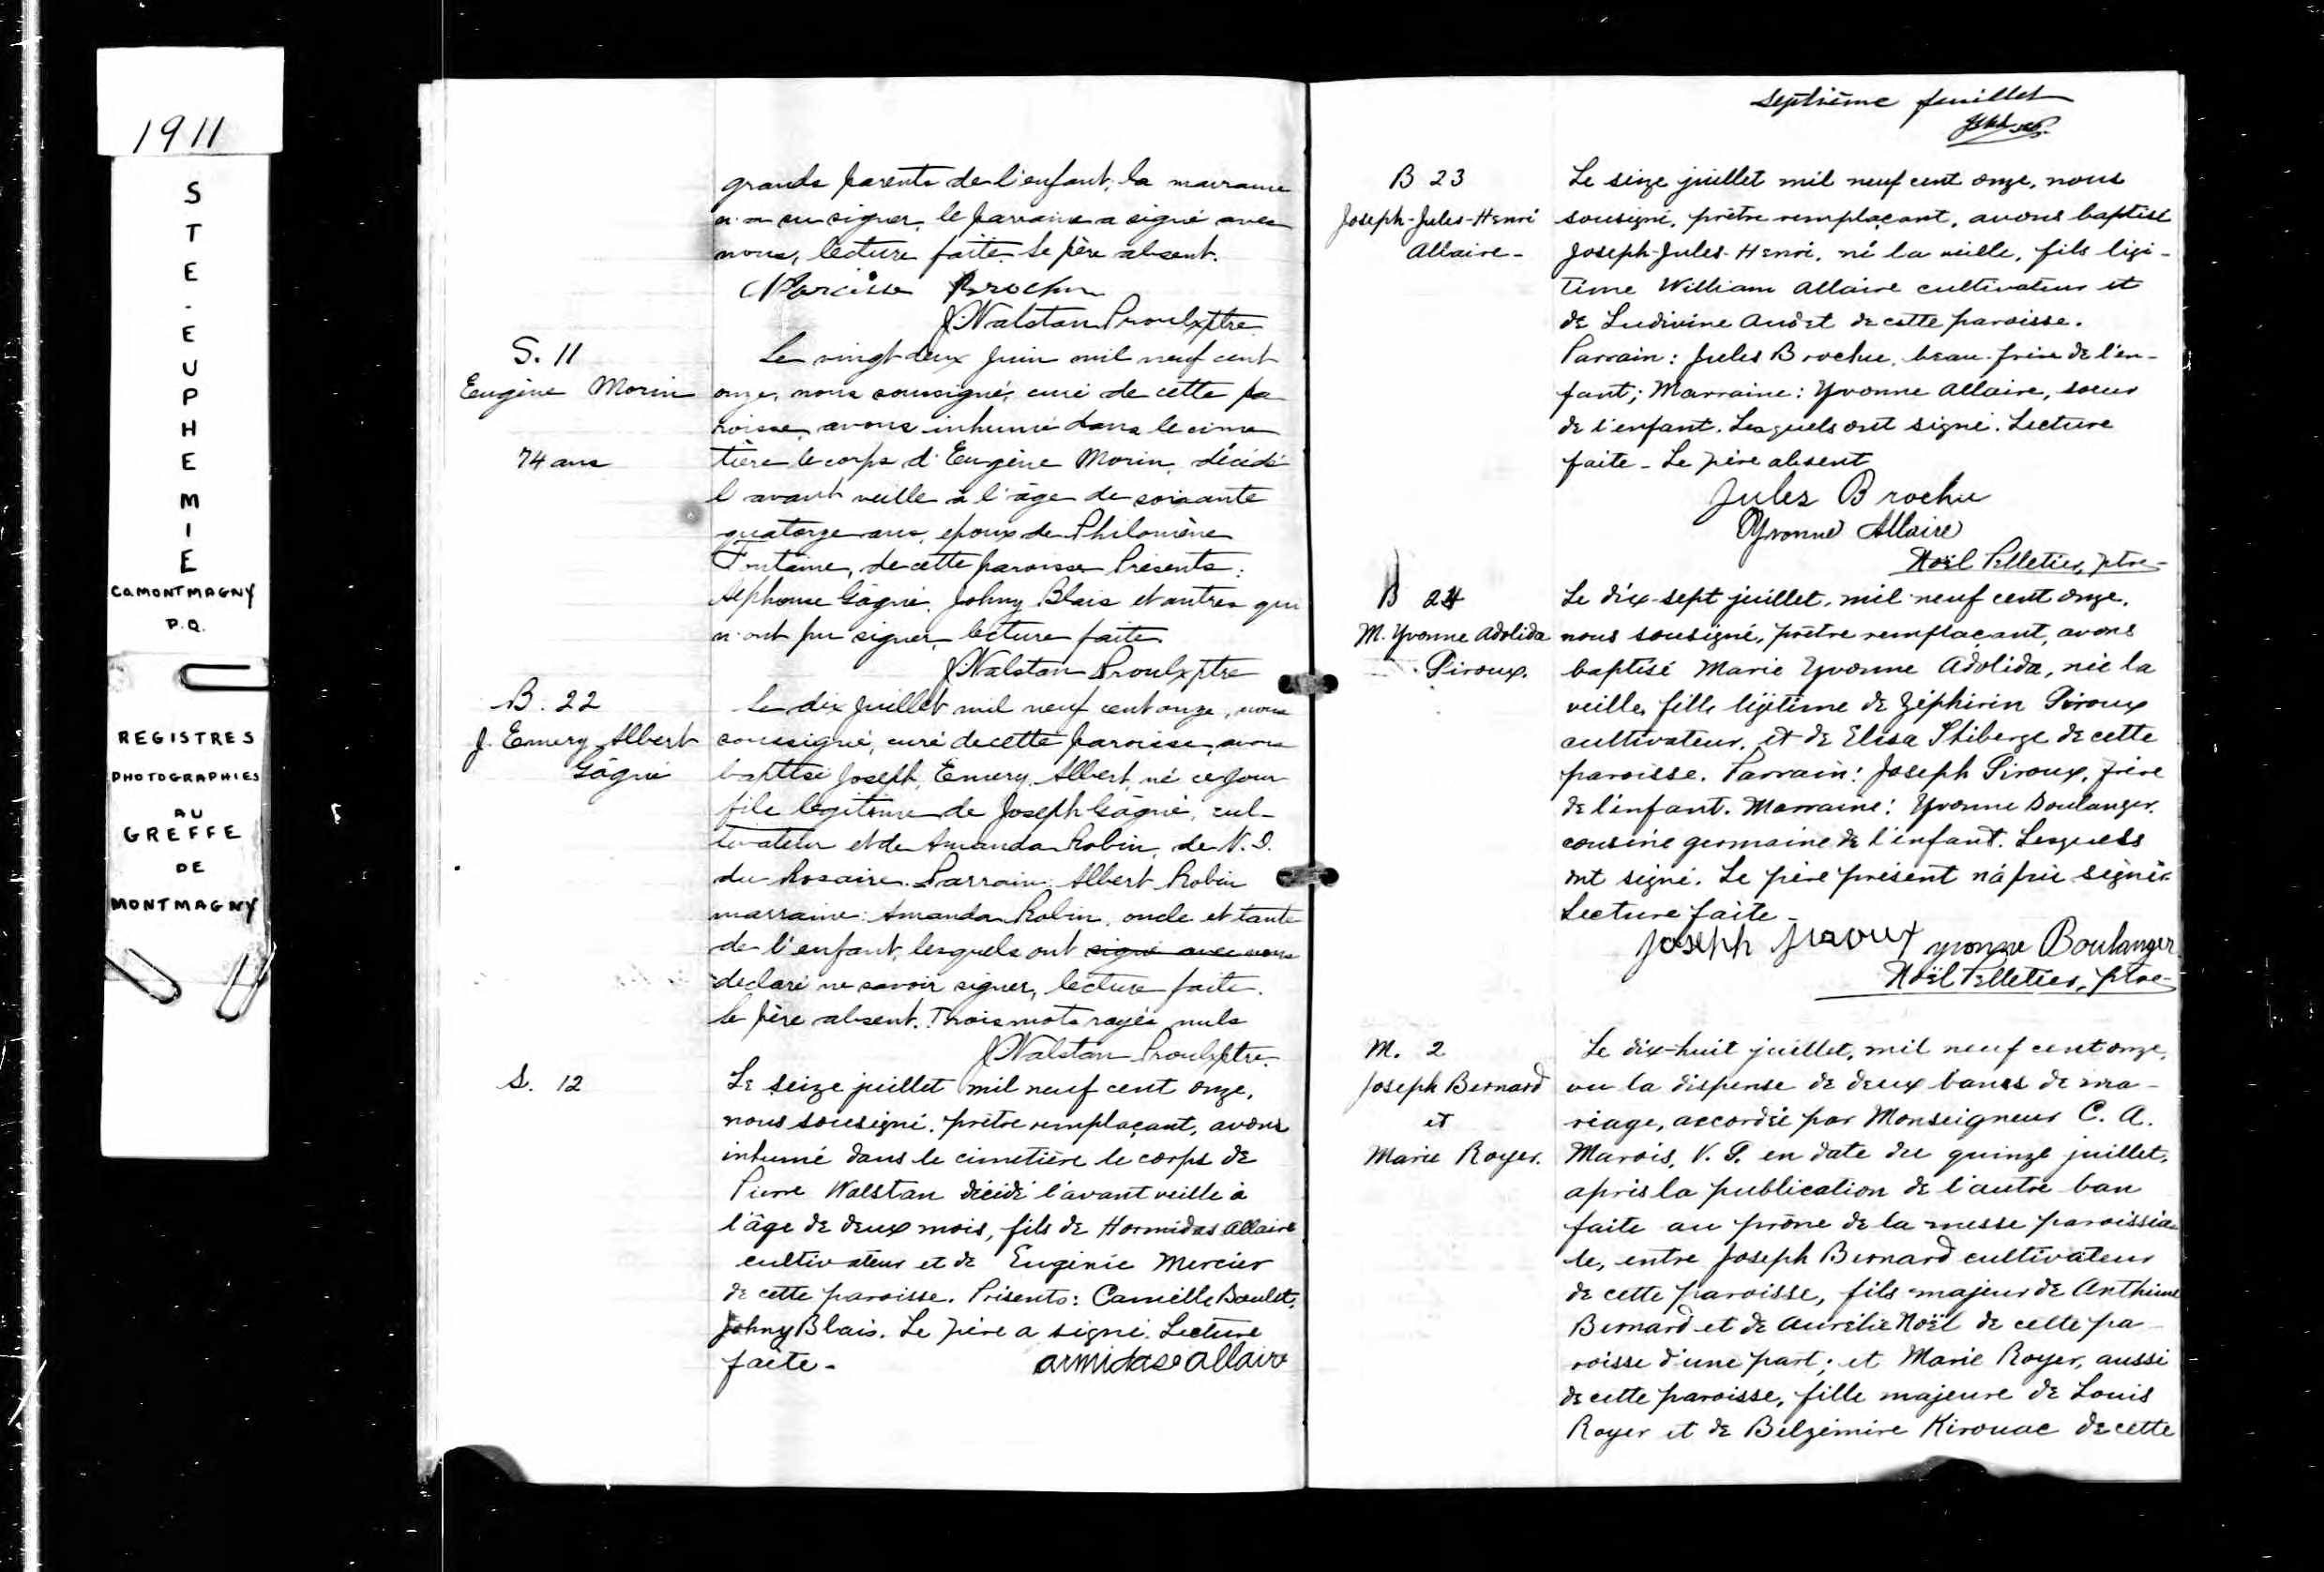 1911
STE-EUPHEMIE
CO.MONTMAGNY
P.Q.
REGISTRES
PHOTOGRAPHIES
AU
GREFFE
DE
MONTMAGNY
grands parents de l'enfant, la marraine
n'a su signer, le parrain a signé avec
nous, lecture faite. Le père absent.
Narcisse Brochu
J. Walstan Proulx ptre
S. 11
Eugène Morin
74 ans
Le vingt deux juin mil neuf cent
onze, nous soussigné, curé de cette pa
roisse, avons inhumé dans le cime
tière le corps d'Eugène Morin, décédé
l'avant veille à l'âge de soixante
quatorze ans, epoux de Philomène
Fontaine, de cette paroisse Présents:
Alphonse Gâgné, Johny Blais et autres qui
n'ont pu signer, lecture faite
J. Walstan Proulx ptre
B. 22
J. Emery Albert
Gâgné
Le dix juillet mil neuf cent onze, nous
soussigné, curé de cette paroisse, avons
baptisé Joseph, Emery, Albert, né ce jour
fils légitime de Joseph Gâgné, cul-
tivateur et de Amanda Robin, de N. D.
du Rosaire. Parrain: Albert Robin
marraine: Amanda Robin, oncle et tante
de l'enfant, lesquels ont signé avec nous
declaré ne savoir signer, lecture faite.
le père absent. Trois mots rayés nuls
J. Walstan Proulx ptre
S. 12
Le seize juillet mil neuf cent onze,
nous sousigné, prêtre remplaçant, avons
inhumé dans le cimetière le corps de
Pierre Walstan décédé l'avant veille à
l'âge de deux mois, fils de Hormidas Allaire
cultivateur et de Eugénie Mercier
de cette paroisse. Présents: Camille Boulet,
Johny Blais. Le père a signé. Lecture
faite-
armidase allaire
Septième feuillet
B 23
Joseph-Jules-Henri
Allaire-
Le seize juillet mil neuf cent onze, nous
sousigné, prêtre remplaçant, avons baptisé
Joseph-Jules-Henri, né la veille, fils légi-
time William Allaire cultivateur et
de Ludivine Audet de cette paroisse.
Parrain: Jules Brochu, beau-frère de l'en-
fant; Marraine: Yvonne Allaire, soeur
de l'enfant. Lesquels ont signé. Lecture
faite- Le père absent
Jules Brochu
Yvonne Allaire
Noël Pelletier, ptre-
B 24
M. Yvonne Adolida
Giroux.
Le dix-sept juillet, mil neuf cent onze,
nous sousigné, prêtre remplaçant, avons
baptisé Marie Yvonne Adolida, née la
veille, fille légitime de Zéphirin Giroux
cultivateur, et de Elisa Thiberge de cette
paroisse. Parrain: Joseph Giroux, frère
de l'enfant. Marraine: Yvonne Boulanger.
cousine germaine de l'enfant. Lesquels
ont signé. Le père présent n'a pu signer.
Lecture faite-
Joseph Jiroux Yvonne Boulanger
Noël Pelletier, ptre-
M. 2
Joseph Bernard
et
Marie Royer.
Le dix-huit juillet, mil neuf cent onze,
vu la dispense de deux bancs de ma-
riage, accordée par Monseigneur C. A.
Marois, V. G. en date du quinze juillet,
après la publication de l'autre ban
faite au prône de la messe paroissia-
le, entre Joseph Bernard cultivateur
de cette paroisse, fils majeur de Anthime
Bernard et de Aurélie Noël de cette pa-
roisse d'une part; et Marie Royer, aussi
de cette paroisse, fille majeure de Louis
Royer et de Belzémire Kirouac de cette